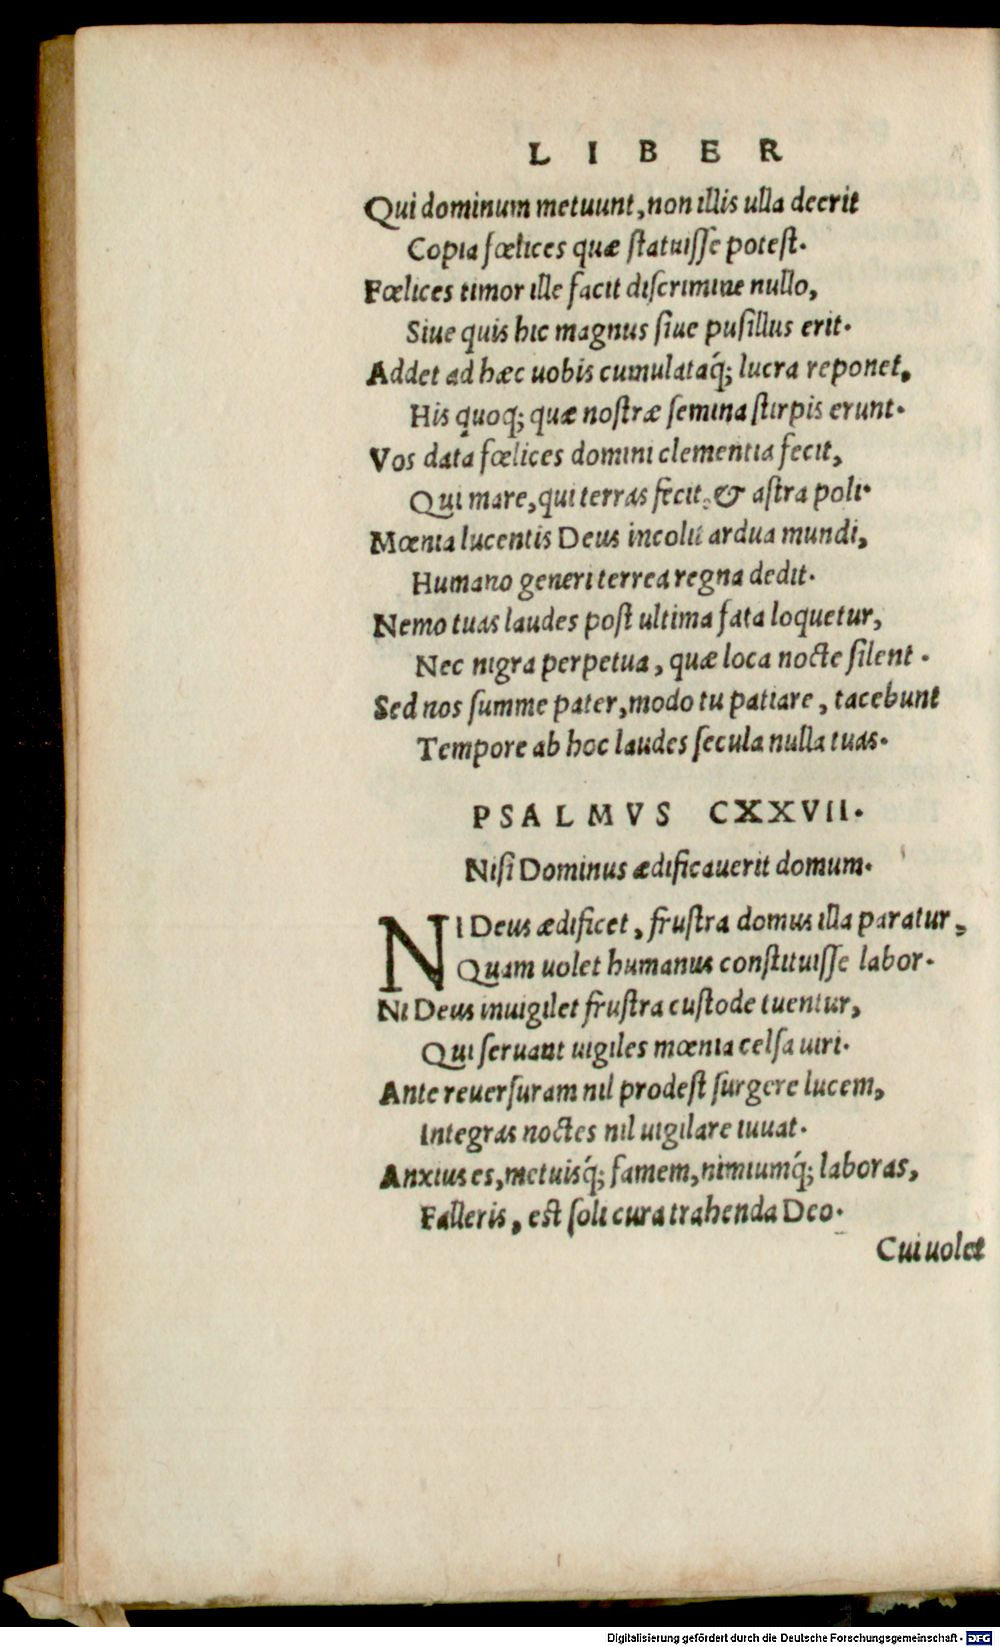 LIBER
Qui dominum metuunt, non illis ulla deerit
Copia fœlices quæ ſtatuiſſe poteſt.
Fœlices timor ille facit diſcrimine nullo,
Siue quis hic magnus ſiue puſillus erit.
Addet ad hæc uobis cumulataq́; lucra reponet,
His quoq; quæ noſtræ ſemina ſtirpis erunt.
Vos data fœlices domini clementia fecit,
Qui mare, qui terras fecit, & aſtra poli.
Mœnia lucentis Deus incolit ardua mundi,
Humano generi terrea regna dedit.
Nemo tuas laudes poſt ultima fata loquetur,
Nec nigra perpetua, quæ loca nocte ſilent.
Sed nos ſumme pater, modo tu patiare, tacebunt
Tempore ab hoc laudes ſecula nulla tuas.
PSALMVS CXXVII.
Niſi Dominus ædificauerit domum.
NI Deus ædificet, fruſtra domus illa paratur,
Quam uolet humanus conſtituiſſe labor.
Ni Deus inuigilet fruſtra cuſtode tuentur,
Qui ſeruant uigiles mœnia celſa uiri.
Ante reuerſuram nil prodeſt ſurgere lucem,
Integras noctes nil uigilare iuuat.
Anxius es, metuisq́; famem, nimiumq́; laboras,
Falleris, eſt ſoli cura trahenda Deo.
Cui uolet
Digitalisierung gefördert durch die Deutsche Forschungsgemeinschaft - DFG